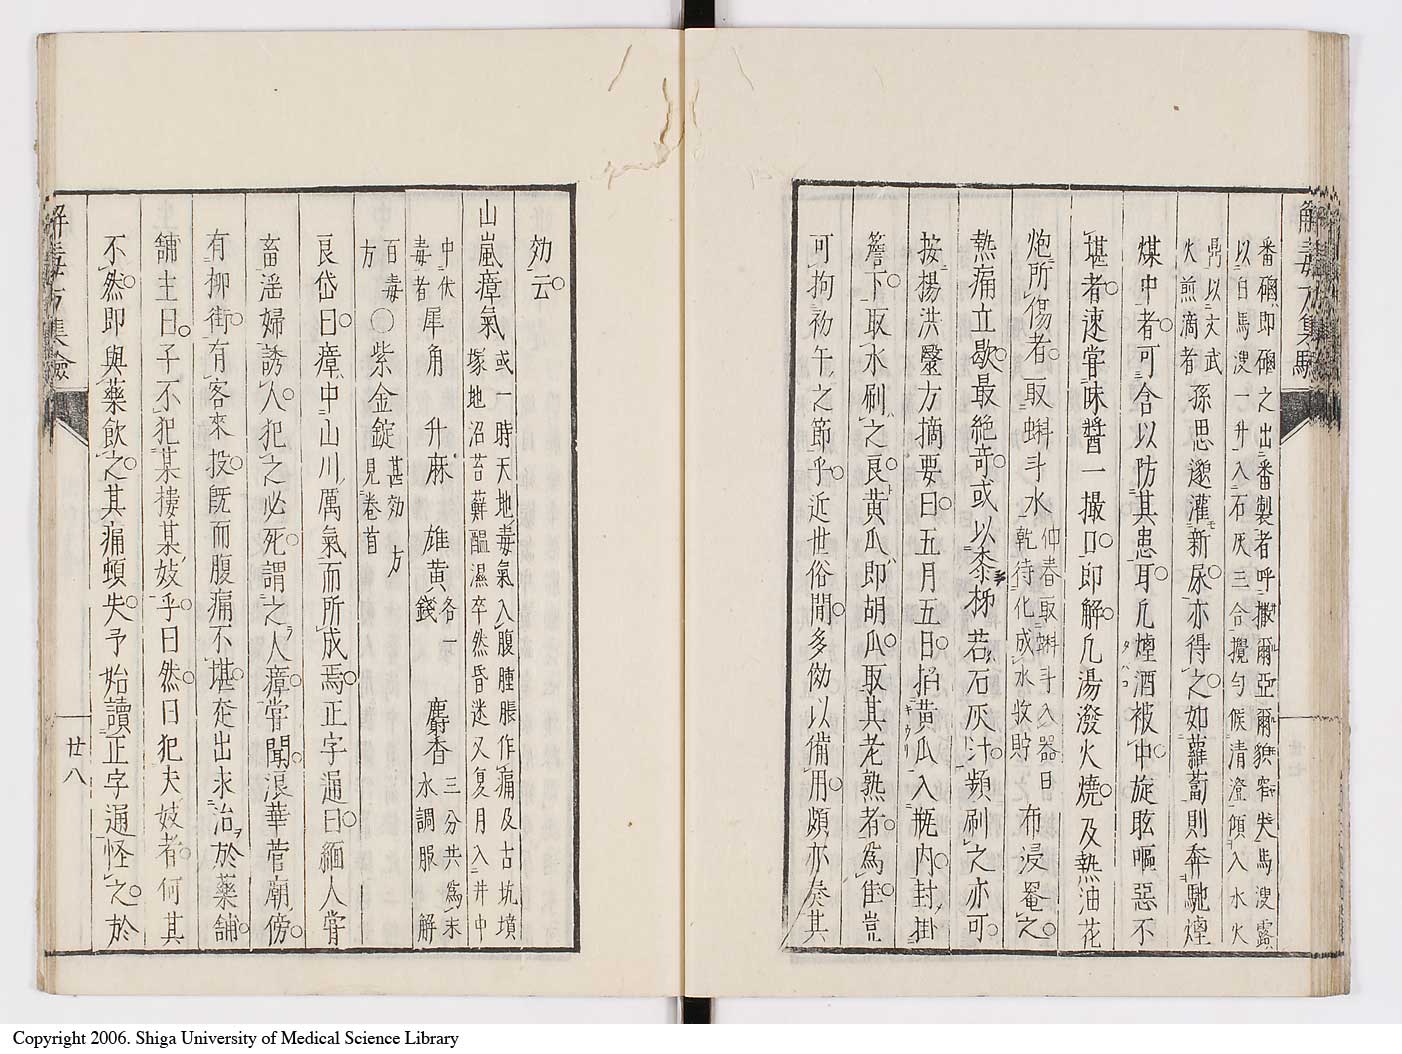 解毒方集驗
番硇即硇之出番製者呼撒爾亞爾
窂失馬溲露
以白馬溲一升入石灰三合攪勻候清澄傾入水火
鼎以文武
火煎滴者孫思邈灌新尿亦得之如蘿蔔則奔馳煙
煤中者可含以防其患耳凡煙酒被中旋眩嘔惡不
堪者速嘗味醬一撮口即解凡湯潑火燒及熱油花
炮所傷者取蝌斗水仲春取蝌斗入器日
乾待化成水收貯布浸罨之
熱痛立歇最絕奇或以黍柹若石灰汁頻刷之亦可
按楊洪醫方摘要曰五月五日掐黃瓜入瓶內封掛
簷下取水刷之良黃瓜即胡瓜取其老熟者為隹豈
可拘初午之節乎近世俗間多傚以備用頗亦奏其
効云
山嵐瘴氣或一時天地毒氣入腹腫脹作痛及古坑墳
塚地沼苔蘚醞濕卒然昏迷又夏月入井中
中伏
毒者犀角 升麻 雄黃各一
錢 麝香三分共為末
水調服 解
百毒
方〇紫金錠甚効 方
見卷首
良岱曰瘴中山川厲氣而所成焉正字通曰緬人嘗
畜滛婦誘人犯之必死謂之人瘴嘗聞浪華菅廟傍
有柳街有客來投既而腹痛不堪趍出求治於藥舖
舖主曰子不犯某樓某妓乎曰然曰犯夫妓者何其
不然即與藥飲之其痛頓失予始讀正字通怪之於
解毒方集驗
廿八
Copyright 2006. Shiga University of Medical Science Library